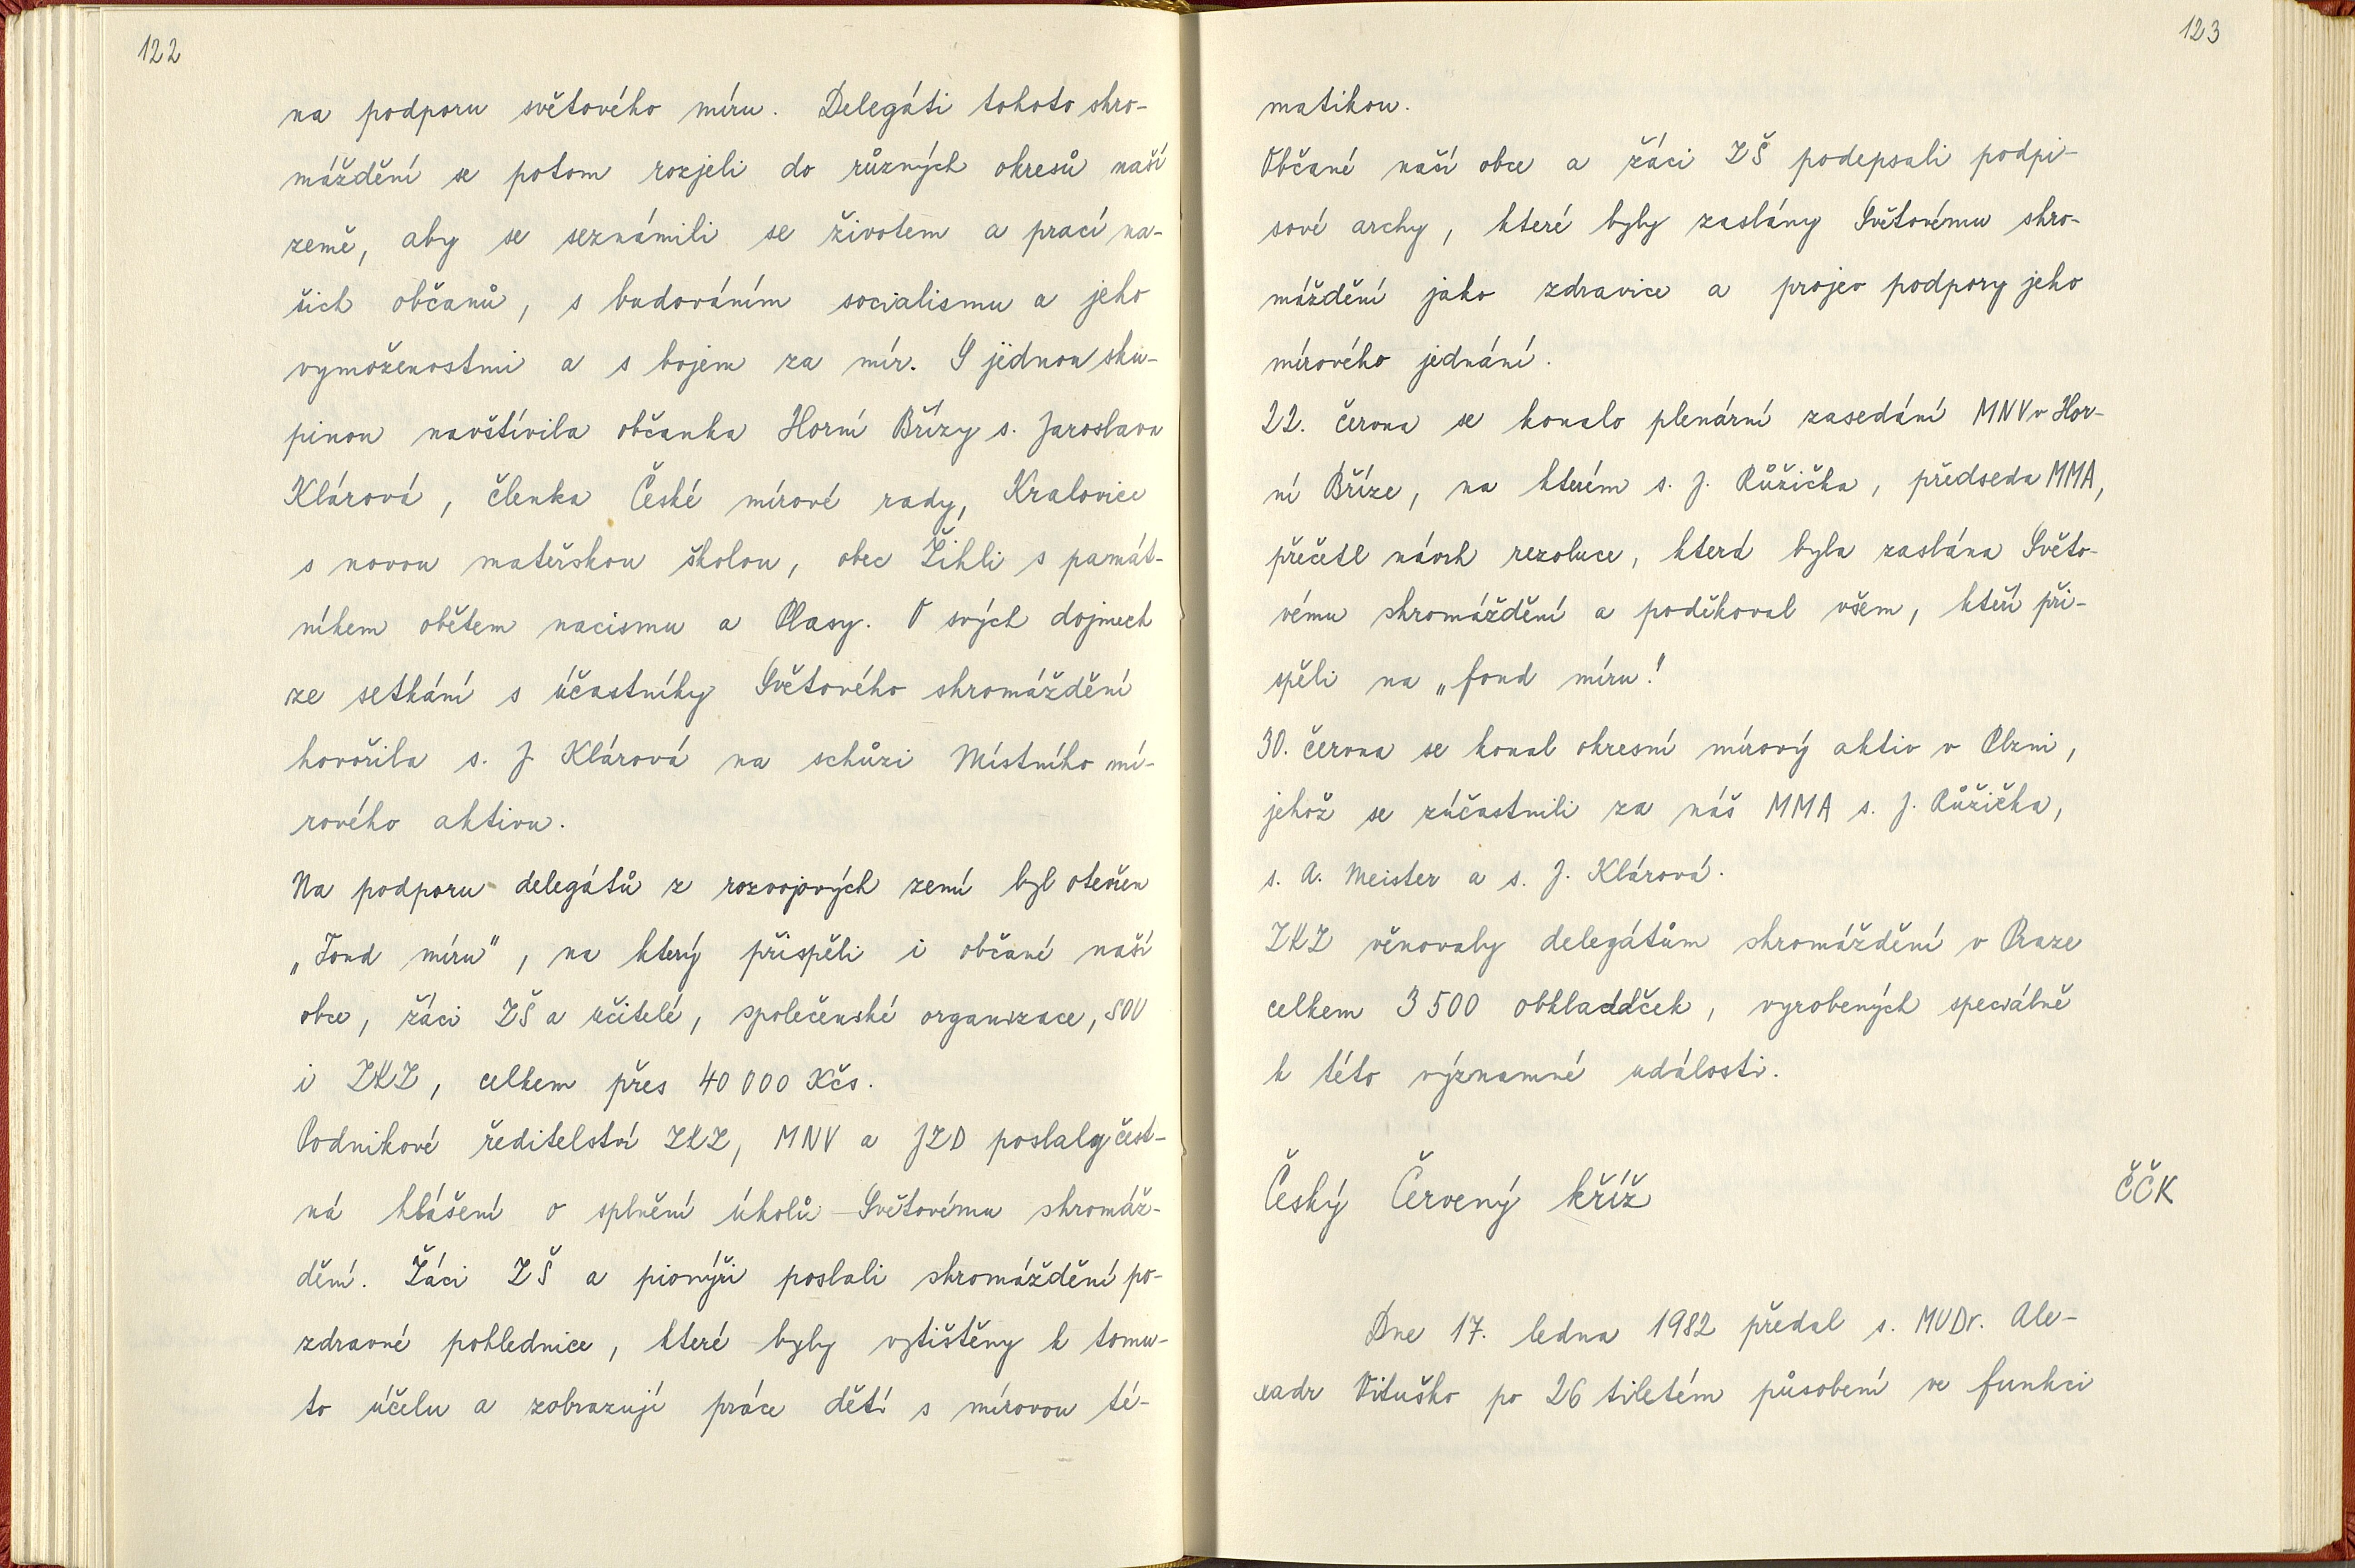 122
na podporu světového míru. Delegáti tohoto shro-
máždění se potom rozjeli do různých okresů naší
země, aby se seznámili se životem a prací na-
šich občanů, s budováním socialismu a jeho
vymoženostmi a s bojem za mír. S jednou sku-
pinou navštívila občanka Horní Břízy s. Jaroslava
Klárová, členka České mírové rady, Kralovice
s novou mateřskou školou, obec Žihli s památ-
níkem obětem nacismu a Plasy. O svých dojmech
ze setkání s účastníky Světového shromáždění
hovořila s. J. Klárová na schůzi Místního mí-
rového aktivu.
Na podporu delegátů z rozvojových zemí byl otevřen
„Fond míru", na který přispěli i občané naší
obce, žáci ZŠ a učitelé, společenské organizace, SOU
i ZKZ, celkem přes 40 000 Kčs.
Podnikové ředitelství ZKZ, MNV a JZD poslaly čest-
ná hlášení o splnění úkolů Světovému shromáž-
dění. Žáci ZŠ a pionýři poslali shromáždění po-
zdravné pohlednice, které byly vytištěny k tomu-
to účelu a zobrazují práce dětí s mírovou té-
123
matikou.
Občané naší obce a žáci ZŠ podepsali podpi-
sové archy, které byly zaslány Světovému shro-
máždění jako zdravice a projev podpory jeho
mírového jednání.
22. června se konalo plenární zasedání MNV v Hor-
ní Bříze, na kterém s. J. Růžička, předseda MMA,
přečetl návrh rezoluce, která byla zaslána Světo-
vému shromáždění a poděkoval všem, kteří při-
spěli na „fond míru".
30. června se konal okresní mírový aktiv v Plzni,
jehož se zúčastnili za náš MMA s. J. Růžička,
s. A. Meister a s. J. Klárová.
ZKZ věnovaly delegátům shromáždění v Praze
celkem 3 500 obkladdček, vyrobených speciálně
k této významné události.
Český Červený kříž
ČČK
Dne 17. ledna 1982 předal s. MUDr. Ale-
xadr Vituško po 26 tiletém působení ve funkci